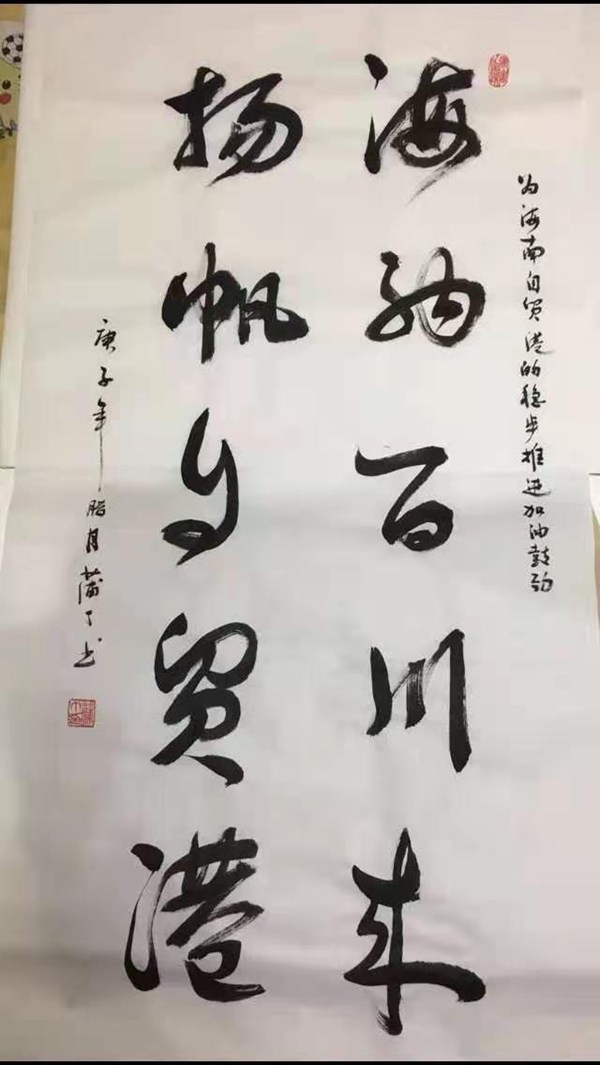 为海南自贸港的稳步推进加油鼓劲
海纳百川来
扬帆自贸港
庚子年腊月蒲丁书